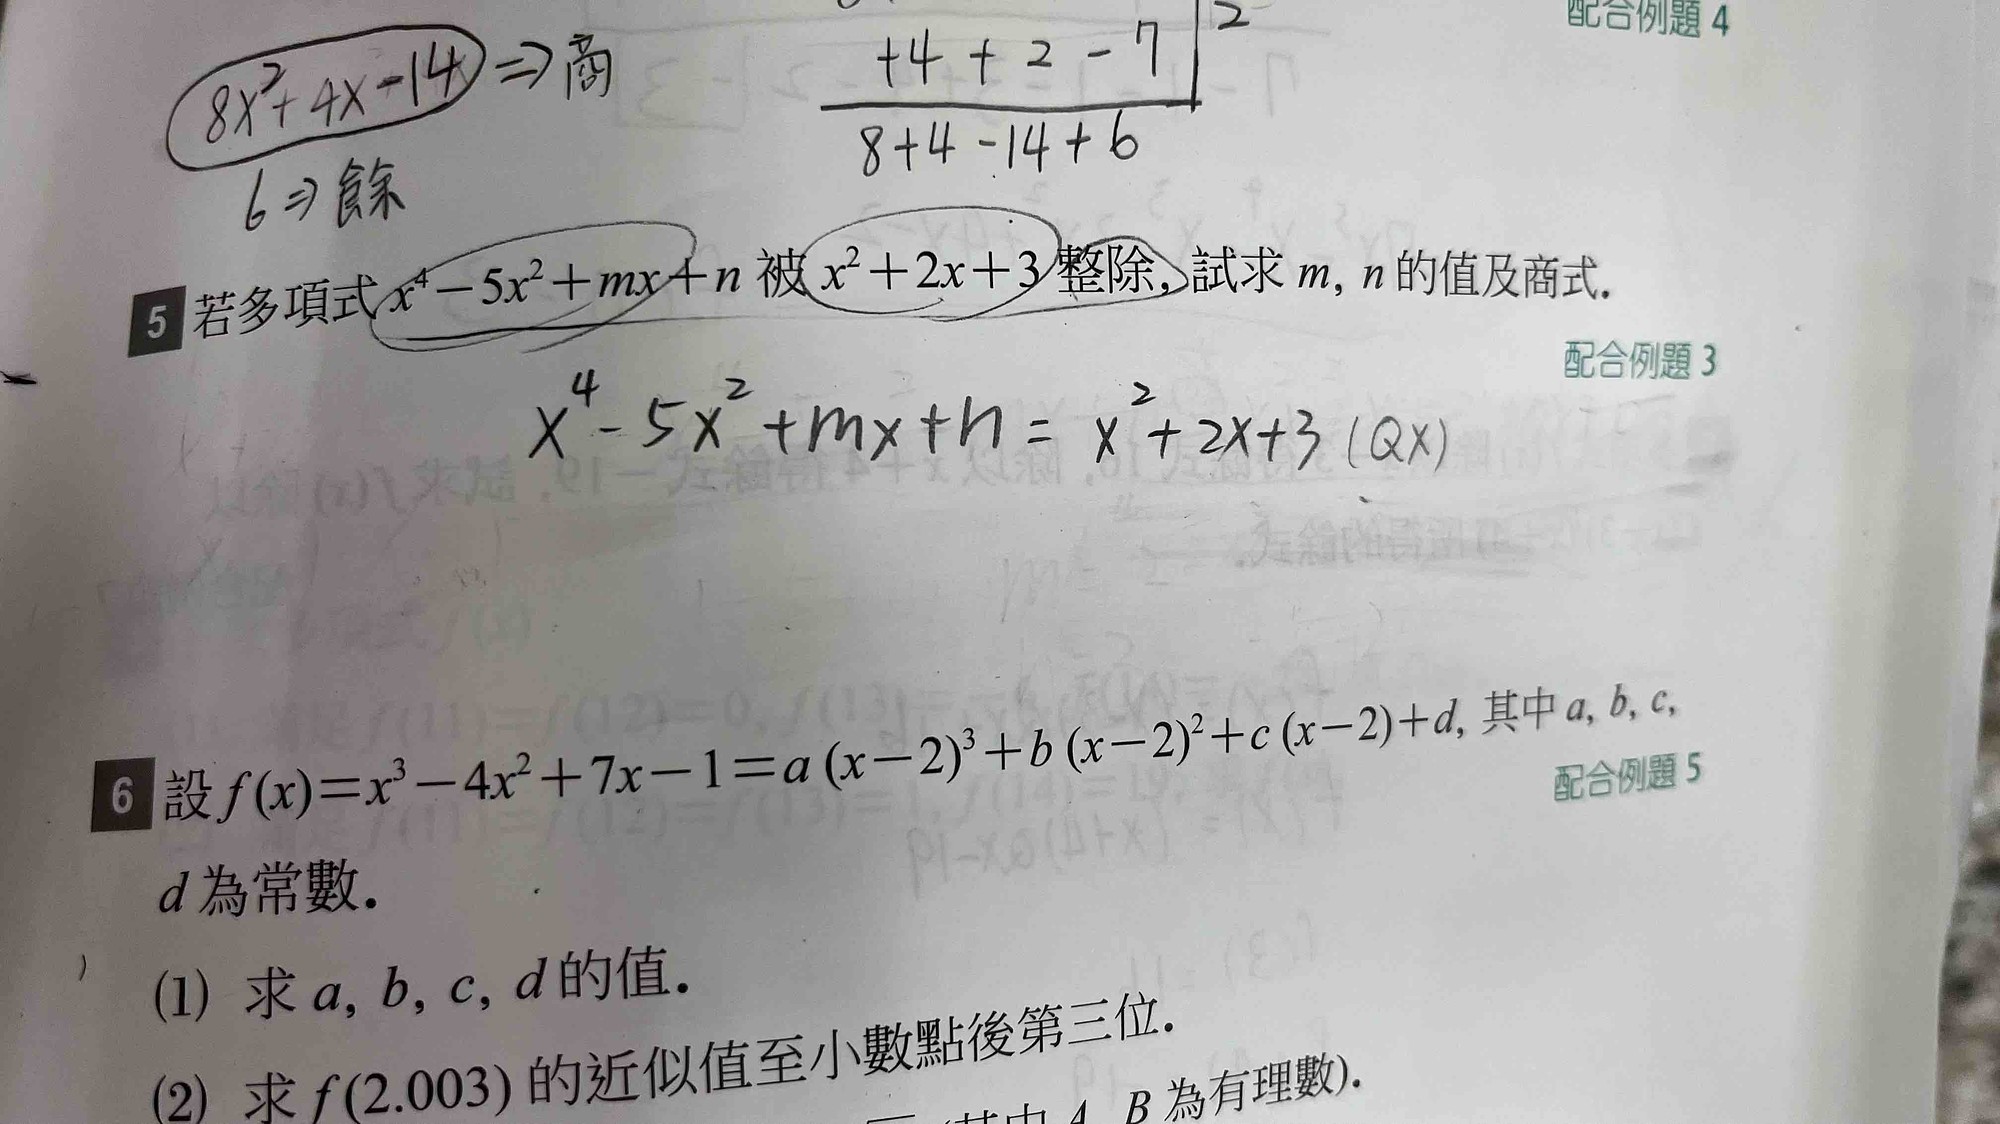 配合例題 4
8x²+4x-14 ⇒ 商
+4+2-7 | 2
8+4-14+6
6 ⇒ 餘
5 若多項式 x⁴-5x²+mx+n 被 x²+2x+3 整除, 試求 m, n 的值及商式.
配合例題 3
x⁴-5x²+mx+n = x²+2x+3 (QX)
6 設 f(x)=x³-4x²+7x-1=a(x-2)³+b(x-2)²+c(x-2)+d, 其中 a, b, c,
配合例題 5
d 為常數.
(1) 求 a, b, c, d 的值.
(2) 求 f(2.003) 的近似值至小數點後第三位.
B 為有理數).